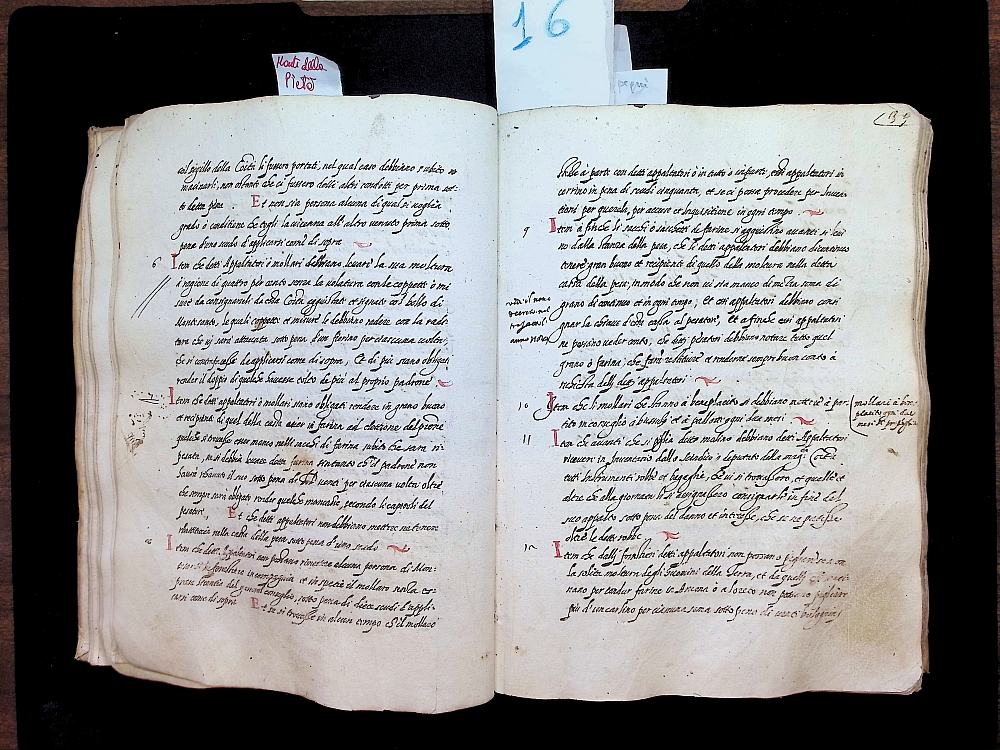 16
Monti della
Pietà
pegni
col sigillo della Cõità li fussero portati, nel qual caso debbiano subito
macinarli, non ostanti che ci fussero delli altri condotti per prima sot-
to detta pena. Et non sia persona alcuna di qual si voglia
grado o conditione che togli la vicenna all'altro venuto prima sotto
pena d'uno scudo d'applicarsi come di sopra
6 Item che detti Appaltatori o mollari debbiano levare la sua moltura
a ragione di quattro per cento senza la violatura con le coppette o mi-
sure da consegnarseli da essa Cõità aggiustate et signate col bollo di
Montesanto, le quali coppette et misure le debbino radere con la radi-
tora che vi sarà attaccata sotto pena d'un fiorino per ciascuna volta
che si contrafacesse da applicarsi come di sopra, Et di più siano obligati
render il doppio di quello che havesse tolto de più al proprio padrone
Item che detti appaltatori o mollari siano obligati rendere in grano buono
et recipiente di quel della cassa over in farina ad elettione del patrone
quello che si trovasse esser manco nelli sacchi di farina subito che sarà ri-
pesata, ne si debbia levare detta farina fintanto ch'il padrone non
haverà rihavuto il suo sotto pena di per ciascuna volta oltre
che sempre sarà obligato render quello che mancasse, secondo li capitoli del
pesatore. Et che detti appaltatori non debbiano mettere ne tenere
nella cassa della pesa sotto pena d'uno scudo
Item che detti Appaltatori non possano rimettere alcuna persona di Mon-
tesanto o forastiere in compagnia et in specie il mollaro nella
senza licentia del consiglio, sotto pena di dieci scudi d'appli-
carsi come di sopra. Et se si trovasse in alcun tempo ch'il mollaro
137
stesse a parte con detti appaltatori o in tutto o in parte, essi appaltatori in-
corrino in pena di scudi cinquanta, et se ci possa procedere per inven-
tioni per querela, per accusa et inquisitione in ogni tempo.
9 Item a fin che li sacchi o sacchetti di farina si aggiustino avanti si levi-
no dalla stanza della pesa, che li detti appaltatori debbiano di continuo
tenere gran buono et recipiente di quello della moltura nella detta
cassa della pesa, in modo che non vi sia manco di meza soma di
grano di continuo et in ogni tempo, et essi appaltatori debbino consi-
gnar la chiave d'essa cassa al pesatore, et a fin che essi appaltatori
ne possino veder conto, che detti pesatori debbino notare tutto quel
grano o farina, che farà restituire et renderne sempre buon conto a
richiesta delli detti appaltatori
10 Item che li mollari che stanno a beneplacito si debbiano mettere a par-
tito in consiglio a bussole et a pallotte ogni due mesi.
mollari a ben-
placito ogni due
mesi
11 Item che avanti che si piglia detto molino debbiano detti Appaltatori
ricevere in Inventario dallo Scindico o deputati della mag.ca Cõità
tutti instrumenti robbe et bagaglie, che vi si trovassero, et quelle et
altre che alla giornata li si designassero consignarle in fine del
suo appalto sotto pena del danno et interesse, che se ne patisse
oltre le dette robbe
12 Item che dalli fornitieri detti appaltatori non possano pigliar se non
la solita moltura degli huomini della Terra, et da quelli
nano per condur farine in Ancona o a Loreto non possano pigliare
più d'un carlino per ciascuna soma sotto pena di venti bolognini